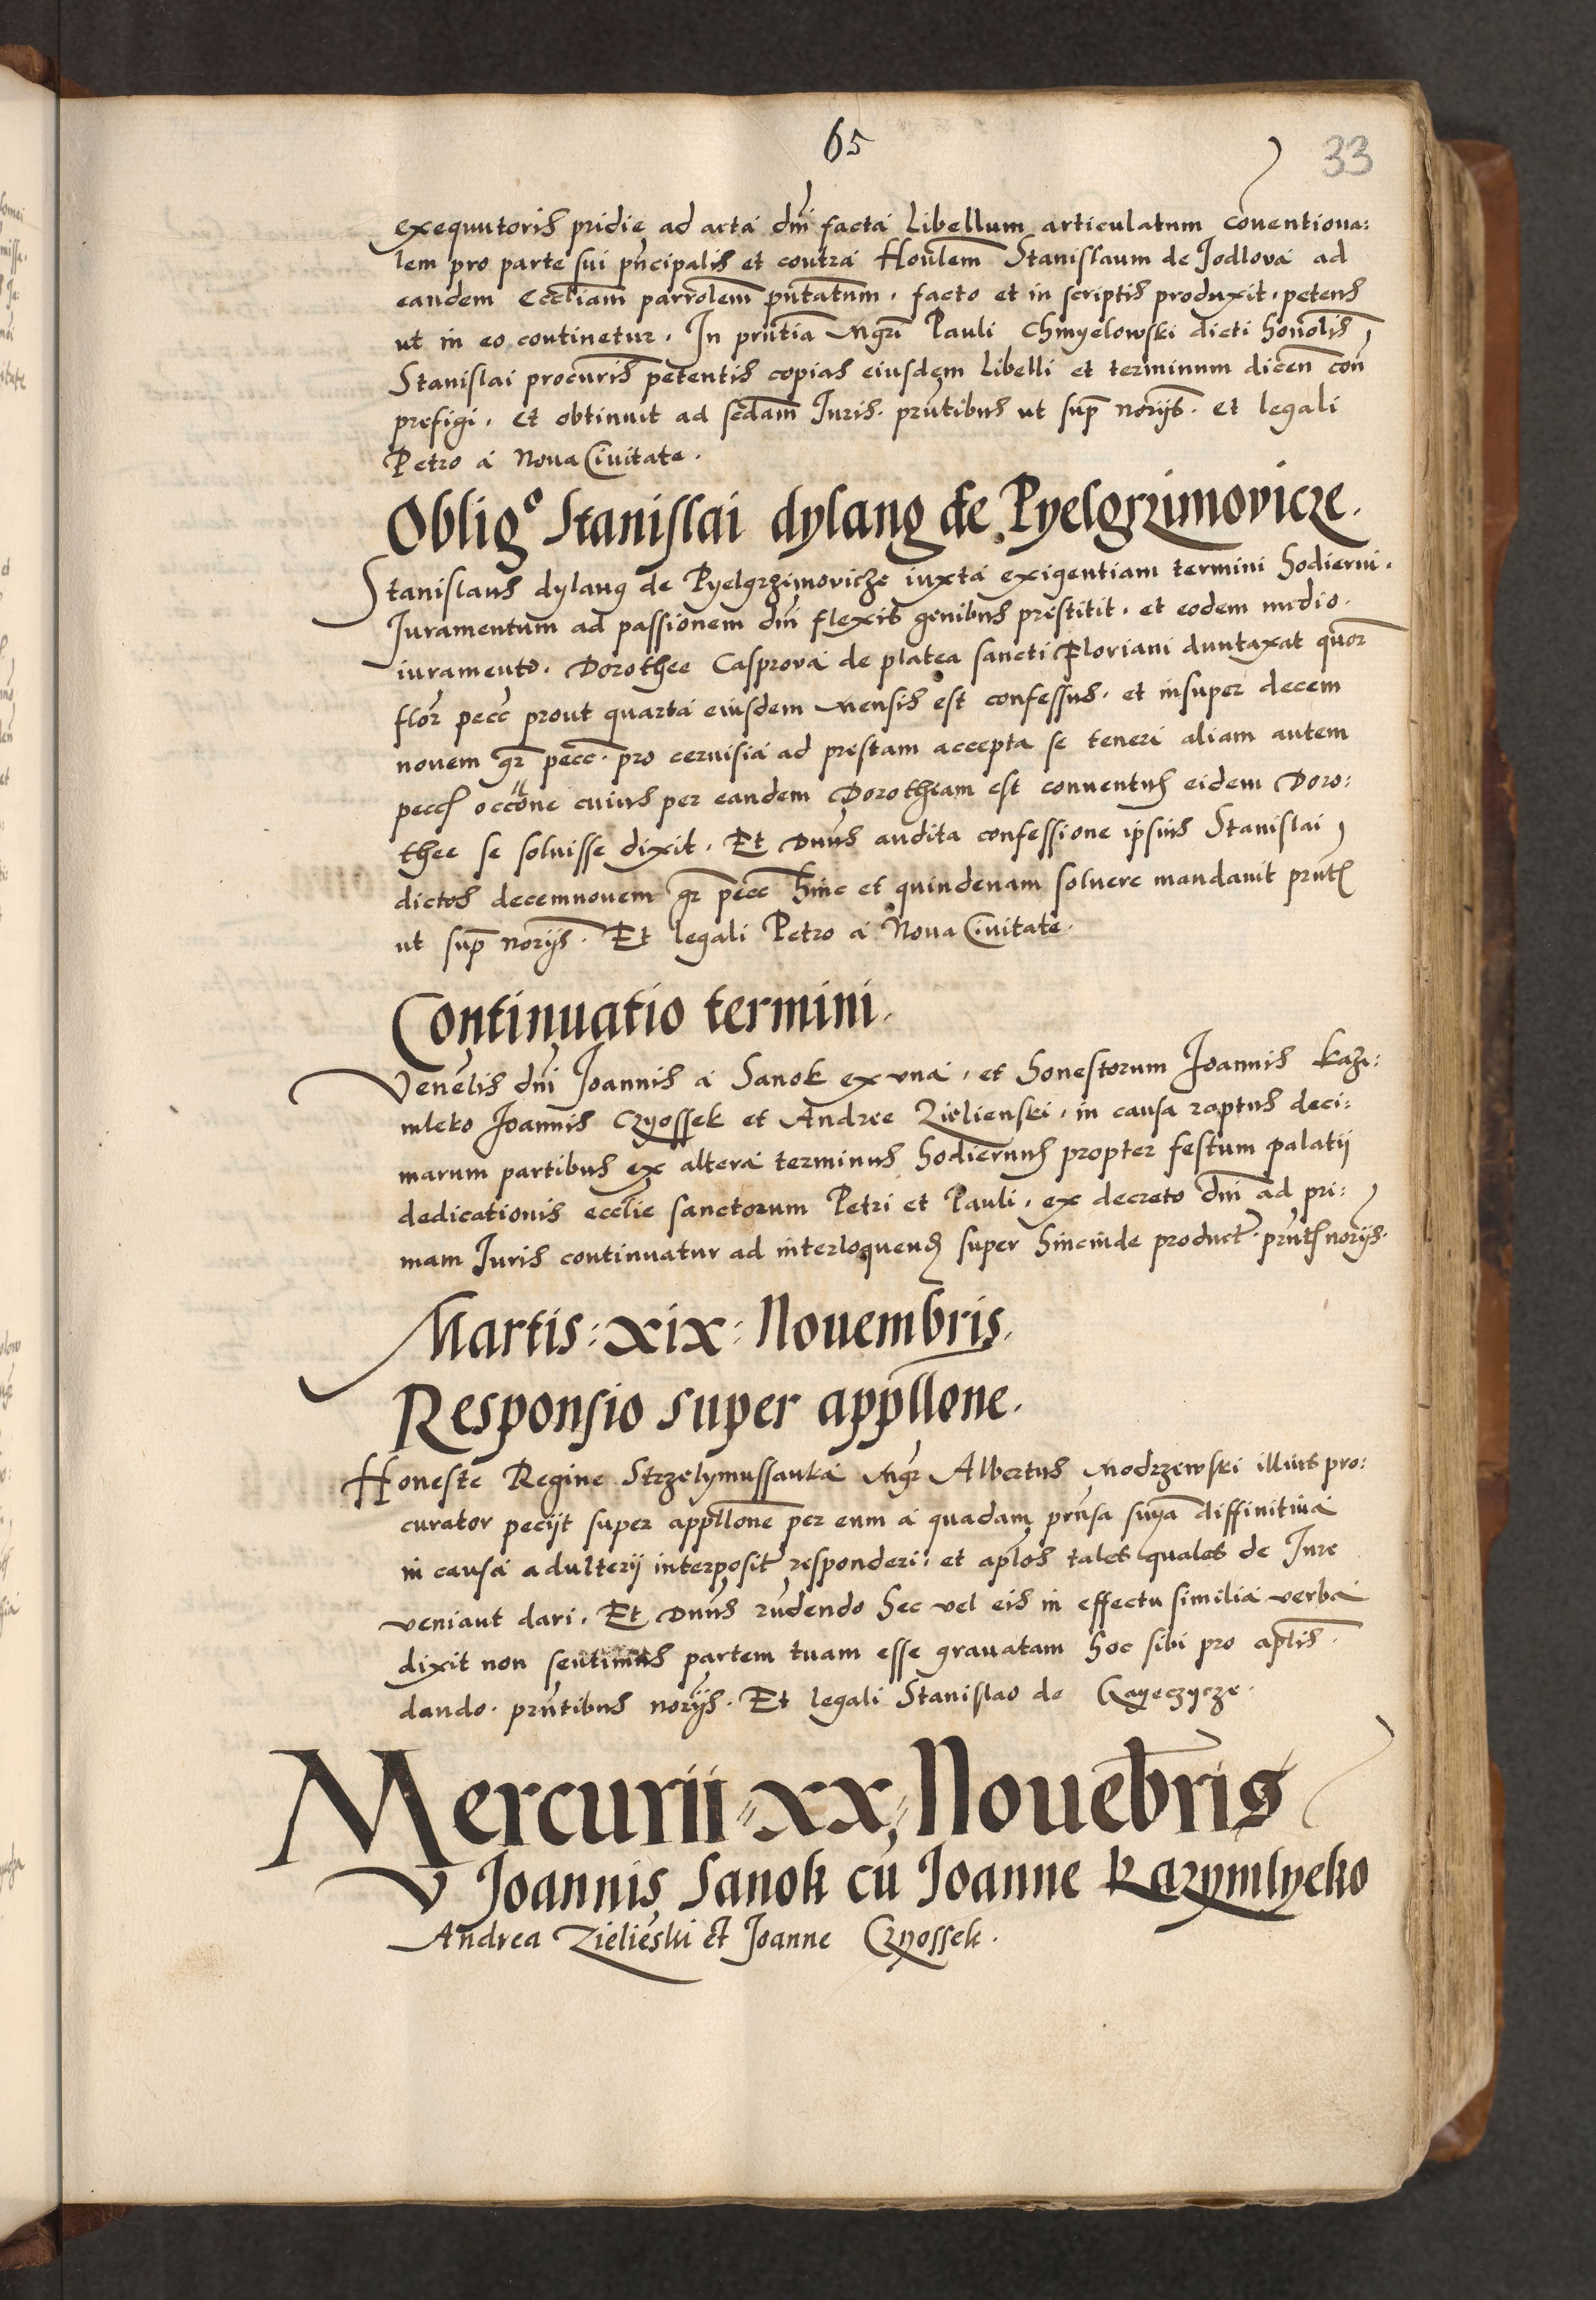 65
33
exequutoris pridie ad acta dñi facta Libellum articulatum conventiona:
lem pro parte sui pñcipalis et contra Honȗlem Stanislaum de Jodlova ad
eandem Eccliam parrolem pñtatum. facto et in scriptis produxit. petens
ut in eo continetur. In pñtia Mgri Pauli Chmyelowski dicti honolis
Stanislai procuris petentis copias eiusdem Libelli et terminum dicen con
prefigi. et obtinuit ad scdam Juris. pñtibus ut sup norijs. et legali
Petro a Nova Civitate.
Obligo Stanislai dylang de Pyelgrzimovicze.
Stanislaus dylang de Pyelgrzimovicze iuxta exigentiam termini hodierni.
Juramentum ad passionem dñi flexis genibus prestitit. et eodem medio.
iuramento. Dorothee Casprova de platea sancti Floriani duntaxat quor
flor pecc prout quarta eiusdem mensis est confessus. et insuper decem
novem gr pecc. pro cervisia ad prestam accepta se teneri aliam autem
pecc occone cuius per eandem Dorotheam est conventus eidem Doro:
thee se solvisse dixit. Et Dnus audita confessione ipsius Stanislai
dictos decemnovem gr pecc hinc et quindenam solvere mandavit pñt
ut sup norijs. Et legali Petro a Nova Civitate.
Continuatio termini.
Venelis dñi Joannis a Sanok ex una. et honestorum Joannis Kazi:
mleko Joannis Czyossek et Andree Zielienski. in causa raptus deci:
marum partibus ex altera terminus hodiernus propter festum palatij
dedicationis ecclie sanctorum Petri et Pauli. ex decreto dñi ad pri:
mam Juris continuatur ad interloquend super hincinde product. pñt norijs.
Martis: xix: Novembris.
Responsio super appllone.
Honeste Regine Strzelymussanka Mgr Albertus Modrzewski illius pro:
curator pecijt super appllone per eum a quadam prensa suya diffinitiva
in causa adulterij interposit responderi: et aplos tales quales de Jure
veniant dari. Et Dnus rñdendo hec vel eis in effectu similia verba
dixit non sentimus partem tuam esse gravatam hoc sibi pro aplis.
dando. pñtibus norijs. Et legali Stanislao de
Mercurii xx Novebris
V Joannis Sanok cū Joanne Kazymlyeko
Andrea Zielieski et Joanne Czyossek.